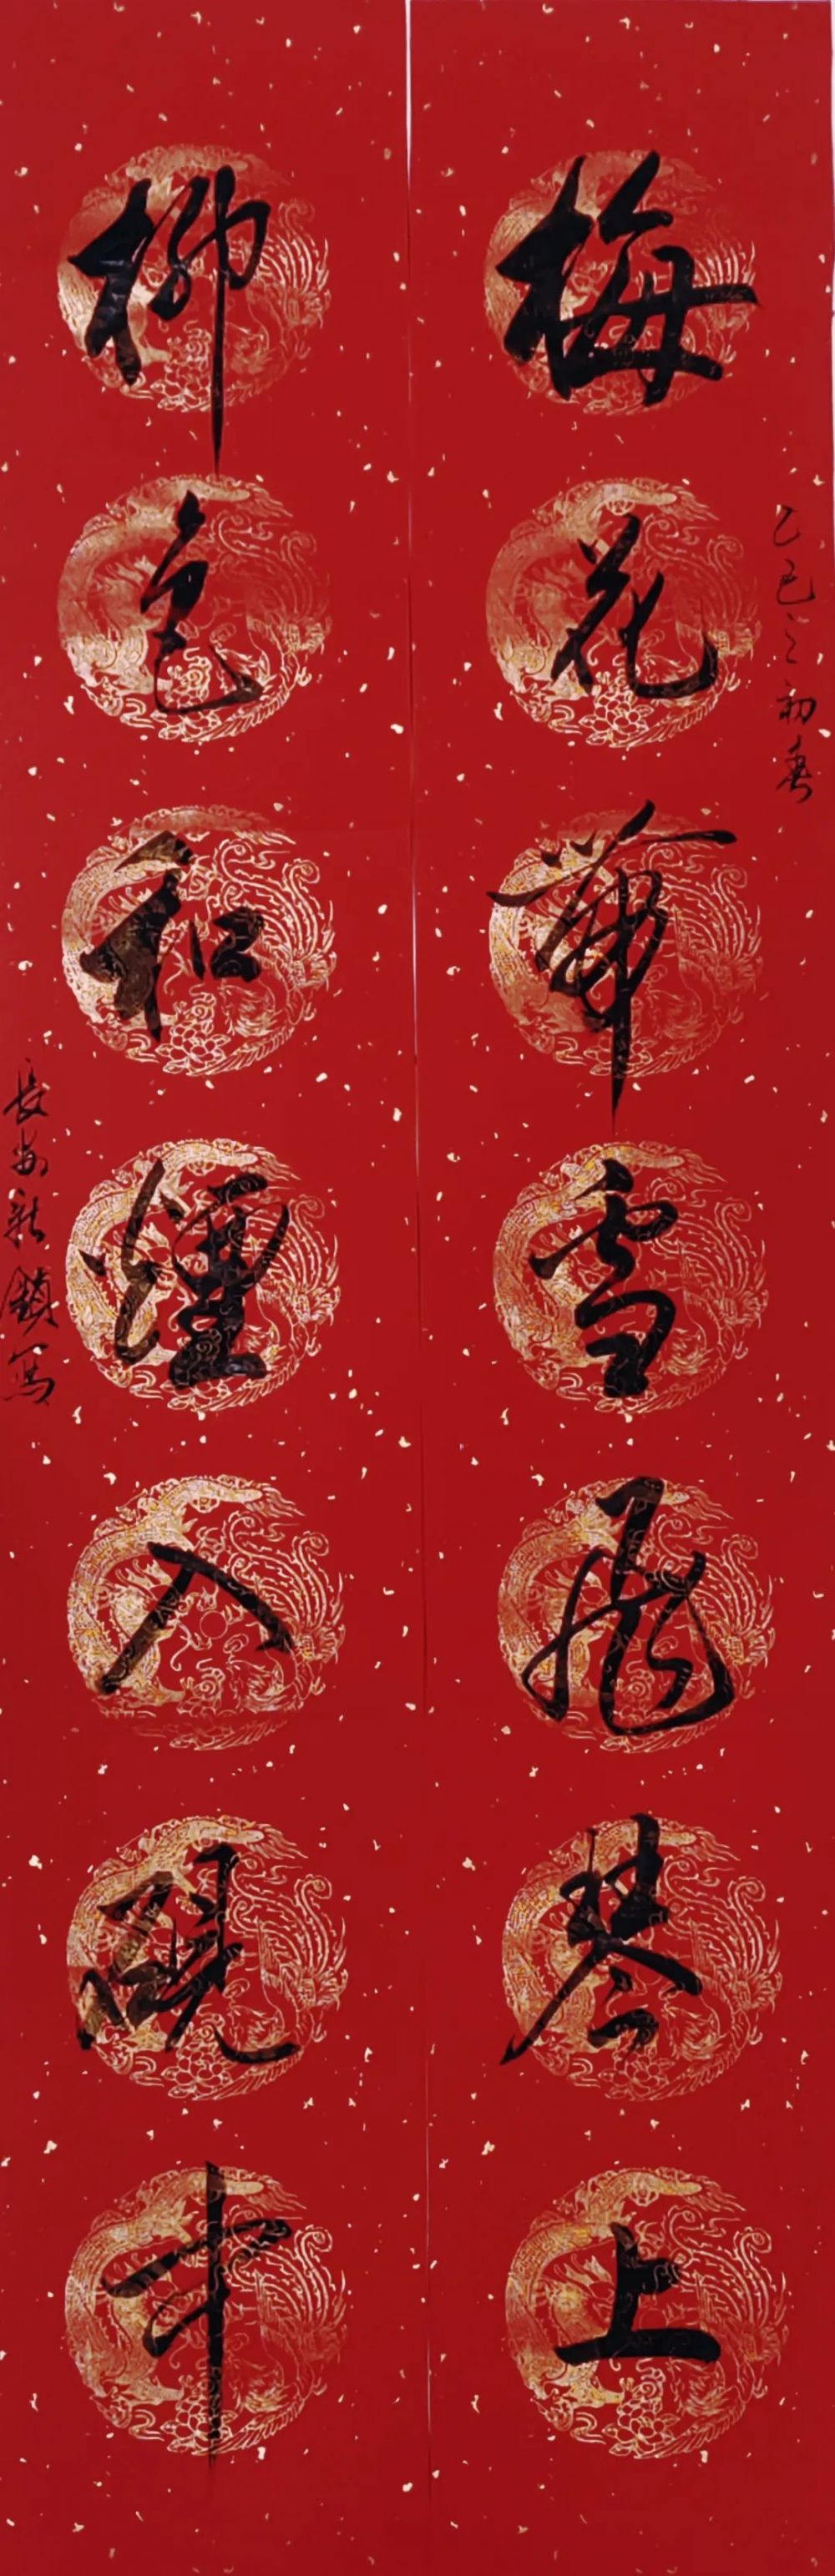 梅花帶雪飛琴上
乙巳之初春
柳色和煙入硯中
長安 鎮寫